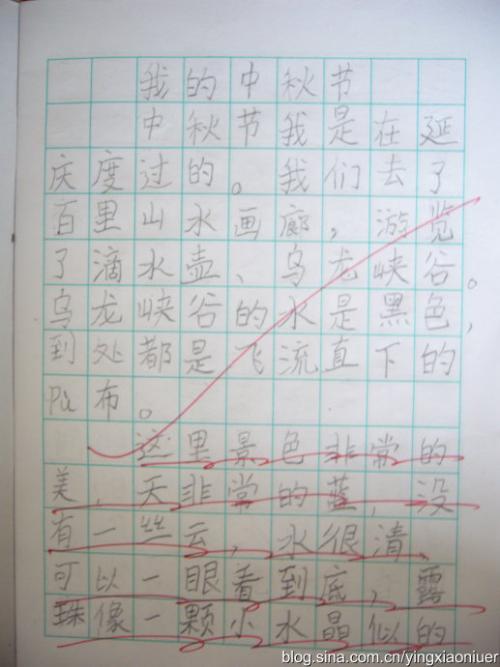 我的中秋节
中秋节我是在延
庆度过的。我们去了
百里山水画廊，游览
了滴水壶、乌龙峡谷。
乌龙峡谷的水是黑色，
到处都是飞流直下的
pù布。
这里景色非常的
美，天非常的蓝，没
有一丝云，水很清，
可以一眼看到底，露
珠像一颗小水晶似的
blog.sina.com.cn/yingxiaoniuer